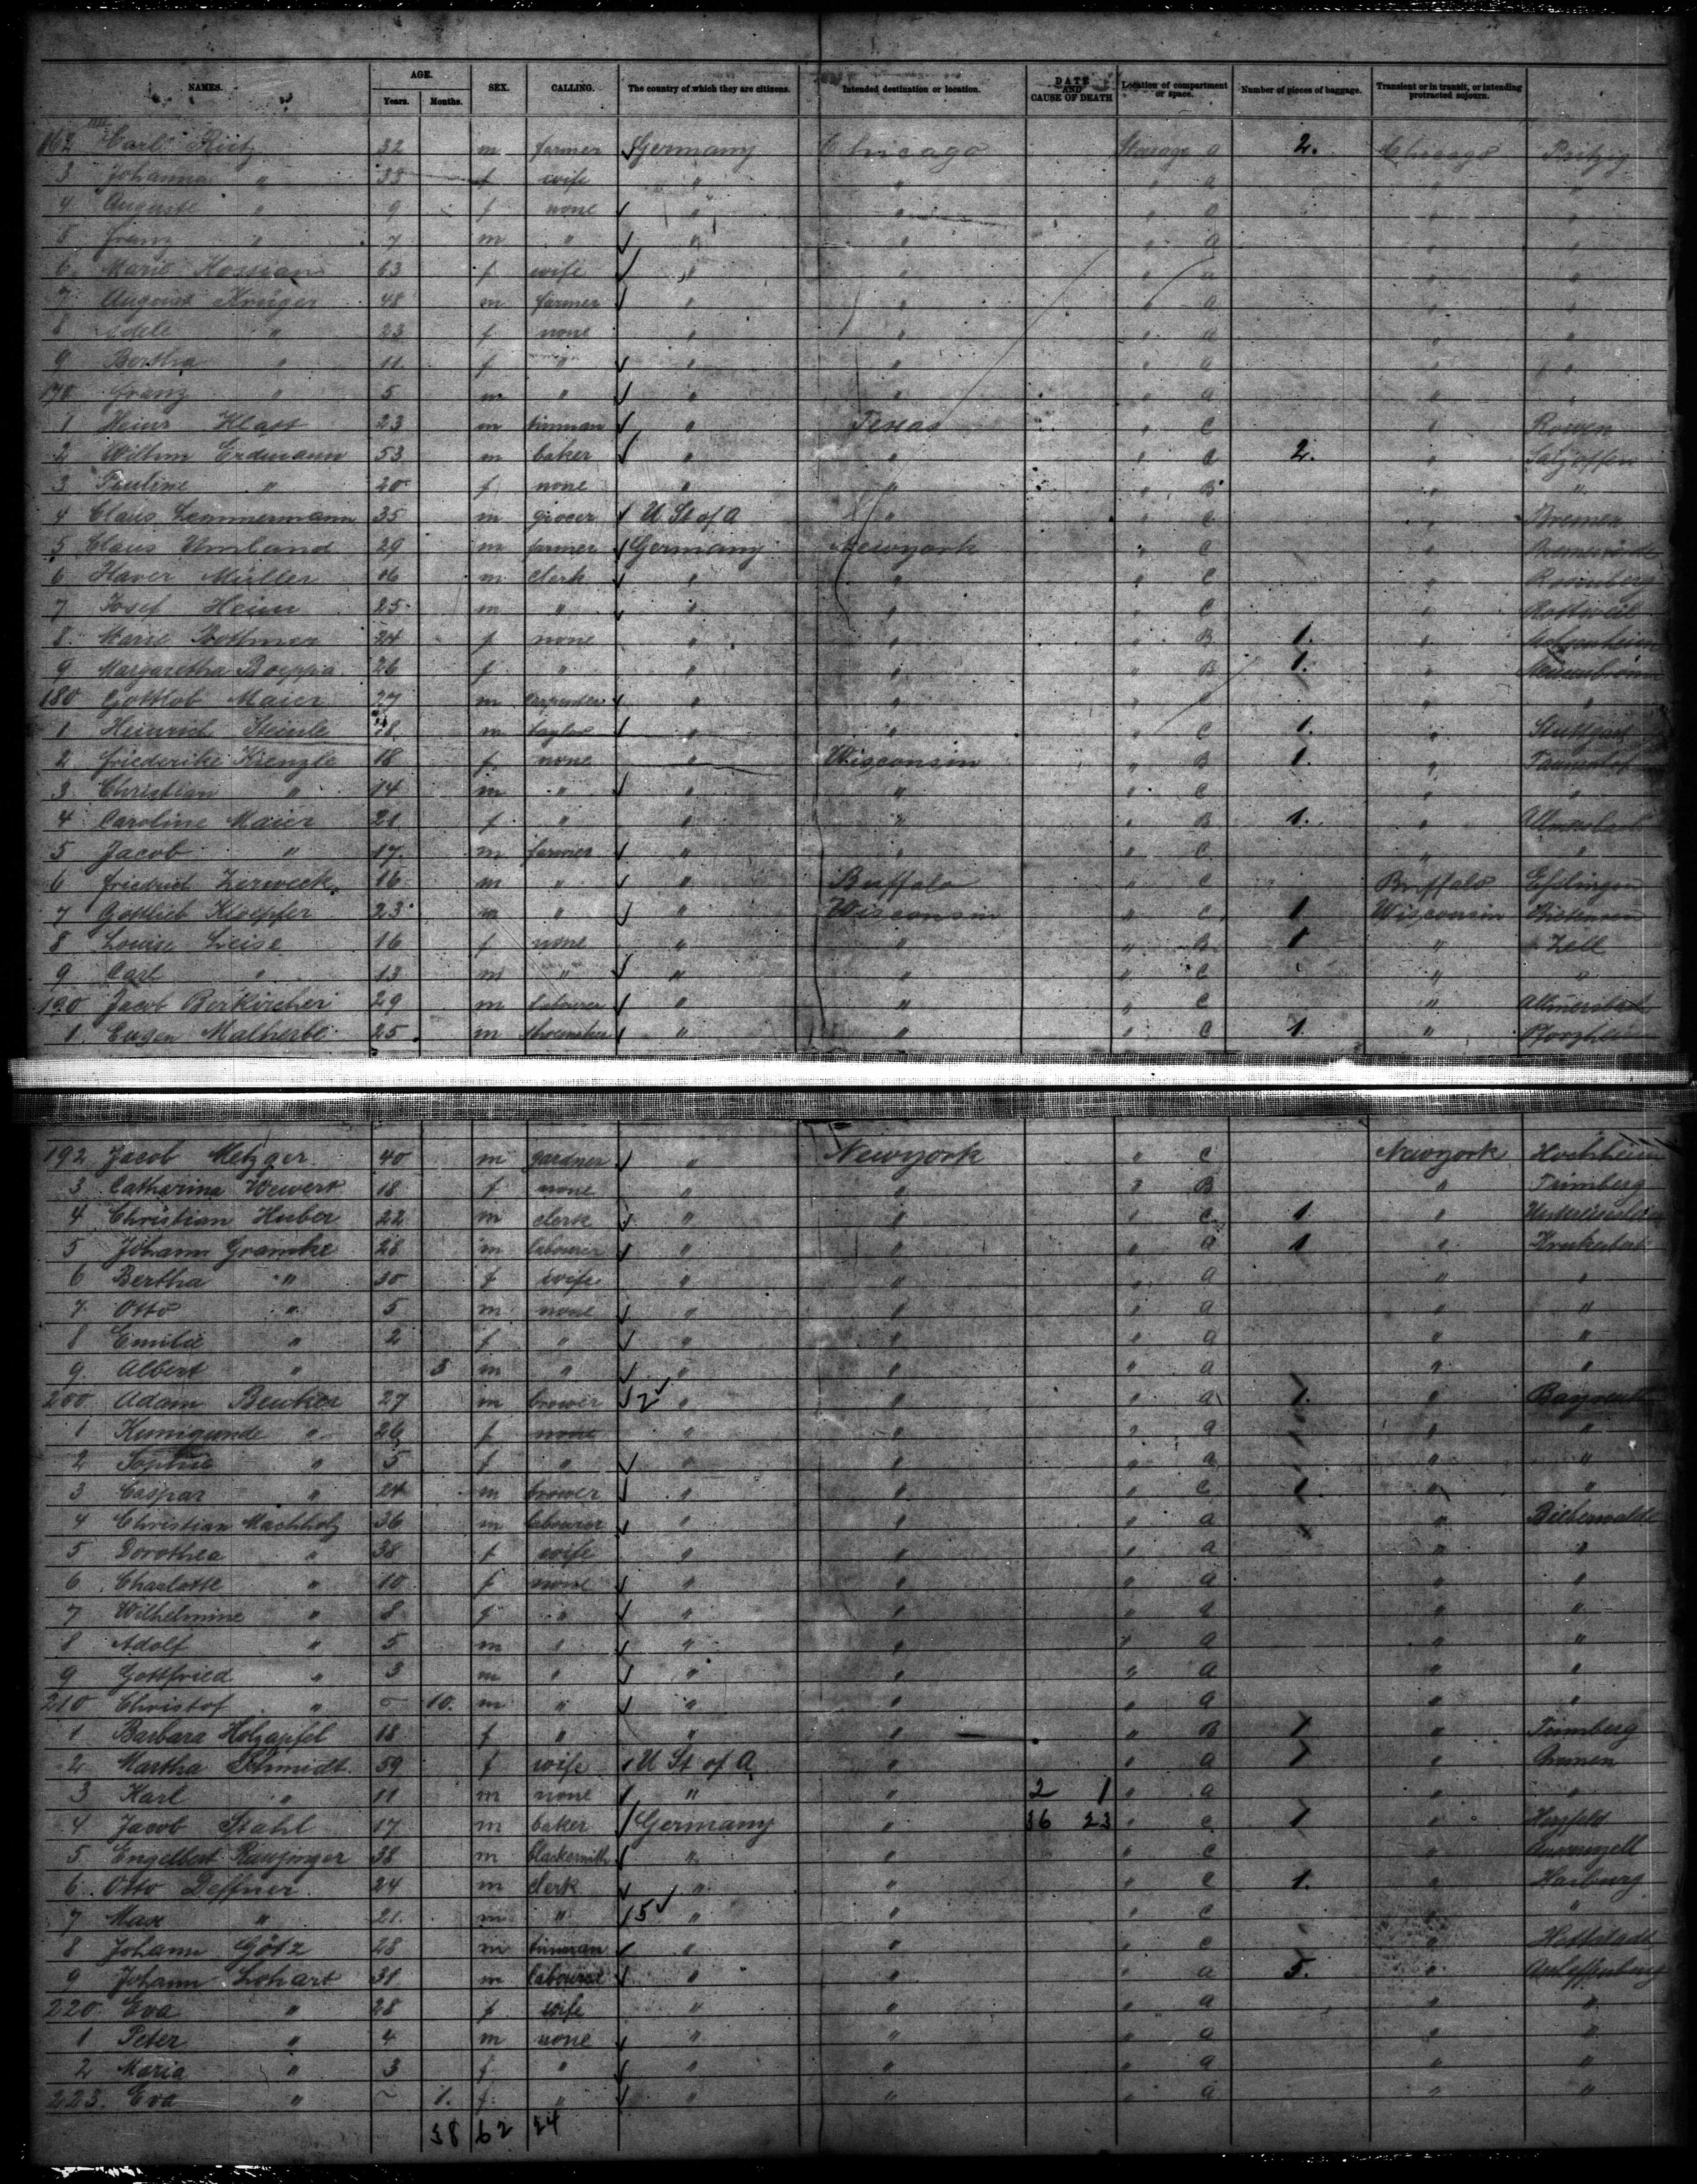 NAMES. AGE. Years. Months. SEX. CALLING. The country of which they are citizens. Intended destination or location. DATE AND CAUSE OF DEATH Location of compartment or space. Number of pieces of baggage. Transient or in transit, or intending protracted sojourn.
162 Carl Rietz 32 m farmer Germany Chicago Steerage a 2. Chicago
3 Johanna " 33 f wife " " " a " "
4 Auguste " 9 f none " " " a " "
5 Franz " 7 m " " " " a " "
6 Marie Kossian 63 f wife " " " a " "
7 August Krüger 48 m farmer " " " a " "
8 Adele " 23 f none " " " a " "
9 Bertha " 11 f " " " " a " "
170 Franz " 5 m " " " " a " "
1 Heinr Klatt 23 m tinman " Texas " C "
2 Wilhm Erdmann 53 m baker " " " a 2. "
3 Pauline " 20 f none " " " B " "
4 Claus Lemmermann 35 m grocer U St of a " " C " Bremen
5 Claus Umland 29 m farmer Germany Newyork " C "
6 Xaver Müller 16 m clerk " " " C "
7 Josef Heim 25 m " " " " C " Rottweil
8 Marie Bothmer 24 f none " " " B 1. "
9 Margaretha 26 f " " " " B 1. "
180 Gottlob Maier 27 m carpenter " " " C " "
1 Heinrich Steinle m taylor " " " C 1. " Stuttgart
2 Friederike Kienzle 18 f none " Wisconsin " B 1. "
3 Christian " 14 m " " " " C " "
4 Caroline Maier 21 f " " " " B 1. "
5 Jacob " 17 m farmer " " " C " "
6 Friedrich Zerweck 16 m " " Buffalo " C Buffalo Eßlingen
7 Gottlieb Kloepfer 23 m " " Wisconsin " C 1 Wisconsin
8 Louise Leise 16 f none " " " B 1 " Zell
9 Carl " 13 m " " " " C " "
190 Jacob Berkircher 29 m labourer " " " C "
1. Eugen Malherbe 25 m shoemaker " " " C 1. " Pforzheim
192 Jacob Metzger 40 m gardner " Newyork " C Newyork Hochheim
3 Catharina Wewert 18 f none " " " B " Trimberg
4 Christian Huber 22 m clerk " " " C 1 "
5 Johann Gramke 28 m labourer " " " a 1 "
6 Bertha " 30 f wife " " " a " "
7 Otto " 5 m none " " " a " "
8 Emilie " 2 f " " " " a " "
9 Albert " 3 m " " " " a " "
200 Adam Beuker 27 m brower 2 " " " a 1. " Bayreuth
1 Kunigunde " 26 f none " " " a " "
2 Sophie " 5 f " " " " a " "
3 Caspar " 24 m brower " " " C 1 " "
4 Christian Machholz 36 m labourer " " " a " Bieberwalde
5 Dorothea " 38 f wife " " " a " "
6 Charlotte " 10 f none " " " a " "
7 Wilhelmine " 8 f " " " " a " "
8 Adolf " 5 m " " " " a " "
9 Gottfried " 3 m " " " " a " "
210 Christof " 10. m " " " " a " "
1 Barbara Holzapfel 18 f " " " " B 1 " Trimberg
2 Martha Schmidt 59 f wife U St of A " " a 1 "
3 Karl " 11 m none " " 2 1 " a " "
4 Jacob Stahl 17 m baker Germany " 36 23 " C 1 " Hersfeld
5 Engelbert 38 m blacksmith " " " C "
6 Otto Deffner 24 m clerk " " " C 1. " Harburg
7 Max " 21 m " 15 " " " C " "
8 Johann Götz 28 m tinman " " " C "
9 Johann Lohart 31 m labourer " " " a 5. "
220. Eva " 28 f wife " " " a " "
1 Peter " 4 m none " " " a " "
2 Maria " 3 f " " " " a " "
223. Eva " 1. f " " " " a " "
38 62 24